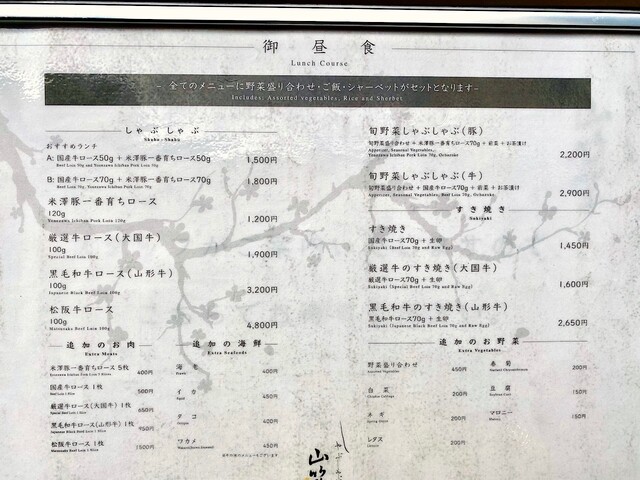 御昼食
Lunch Course
- 全てのメニューに野菜盛り合わせ・ご飯・シャーベットがセットとなります-
Includes: Assorted vegetables, Rice and Sherbet
しゃぶしゃぶ
Shabu-Shabu
おすすめランチ
A: 国産牛ロース50g + 米澤豚一番育ちロース50g 1,500円
Beef Loin 50g and Yonezawa Ichiban Pork Loin 50g
B: 国産牛ロース70g + 米澤豚一番育ちロース70g 1,800円
Beef Loin 70g, Yonezawa Ichiban Pork Loin 70g
米澤豚一番育ちロース
120g 1,200円
Yonezawa Ichiban Pork Loin 120g
厳選牛ロース(大国牛)
100g 1,900円
Special Beef Loin 100g
黒毛和牛ロース(山形牛)
100g 3,200円
Japanese Black Beef Loin 100g
松阪牛ロース
100g 4,800円
Matsusaka Beef Loin 100g
旬野菜しゃぶしゃぶ(豚)
旬野菜盛り合わせ + 米澤豚一番育ちロース70g + 前菜 + お茶漬け
Appetizer, Seasonal Vegetables,
Yonezawa Ichiban Pork Loin 70g, Ochazuke 2,200円
旬野菜しゃぶしゃぶ(牛)
旬野菜盛り合わせ + 国産牛ロース70g + 前菜 + お茶漬け
Appetizer, Seasonal Vegetables, Beef Loin 70g, Ochazuke 2,900円
すき焼き
Sukiyaki
すき焼き
国産牛ロース70g + 生卵 1,450円
Sukiyaki (Beef Loin 70g and Raw Egg)
厳選牛のすき焼き(大国牛)
厳選牛ロース70g + 生卵 1,600円
Sukiyaki (Special Beef Loin 70g and Raw Egg)
黒毛和牛のすき焼き(山形牛)
黒毛和牛ロース70g + 生卵 2,650円
Sukiyaki (Japanese Black Beef Loin 70g and Raw Egg)
追加のお肉
Extra Meats
米澤豚一番育ちロース 5枚 400円
国産牛ロース 1枚 500円
厳選牛ロース(大国牛) 1枚 650円
黒毛和牛ロース(山形牛) 1枚 950円
松阪牛ロース 1枚 1500円
追加の海鮮
Extra Seafoods
海老 400円
イカ 450円
タコ 400円
ワカメ 450円
追加のお野菜
Extra Vegetables
野菜盛り合わせ 450円
白菜 200円
ネギ 200円
レタス 200円
春菊 200円
豆腐 150円
マロニー 150円
山笑